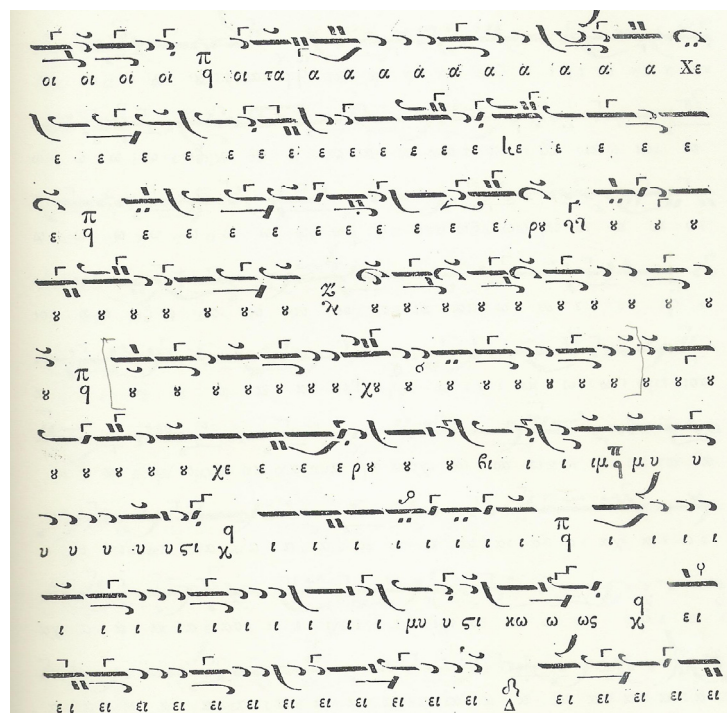 οι οι οι οι π q οι τα α α α α α α α α α α Χε
ε ε ε ε ε ε ε ε ε ε ε κε ε ε ε ε
ε π q ε ε ε ε ε ε ε ε ε ρȣ ȣ ȣ ȣ
ȣ ȣ ȣ ȣ ȣ ȣ ȣ ȣ ȣ ȣ ȣ ȣ ȣ ȣ ȣ
ȣ π q ȣ ȣ ȣ ȣ ȣ ȣ ȣ χȣ ȣ ȣ ȣ ȣ ȣ ȣ ȣ ȣ ȣ
ȣ ȣ ȣ ȣ ȣ χε ε ε ε ρȣ ȣ ȣ ȣ βι ι ι ιμ π q μυ υ
υ υ υ υ υ ςι q ι ι ι ι ι ι ι π q ι ι ι ι
ι ι ι ι ι ι ι ι ι ι μυ υ ςι κω ω ως q ει
ει ει ει ει ει ει ει ει ει ει Δ ει ει ει ει